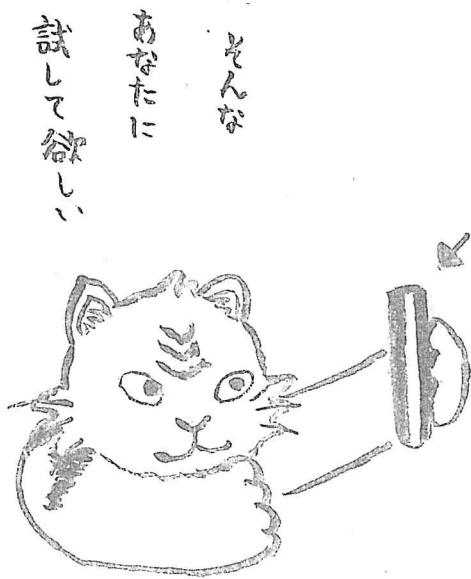 そんな
あなたに
試して欲しい